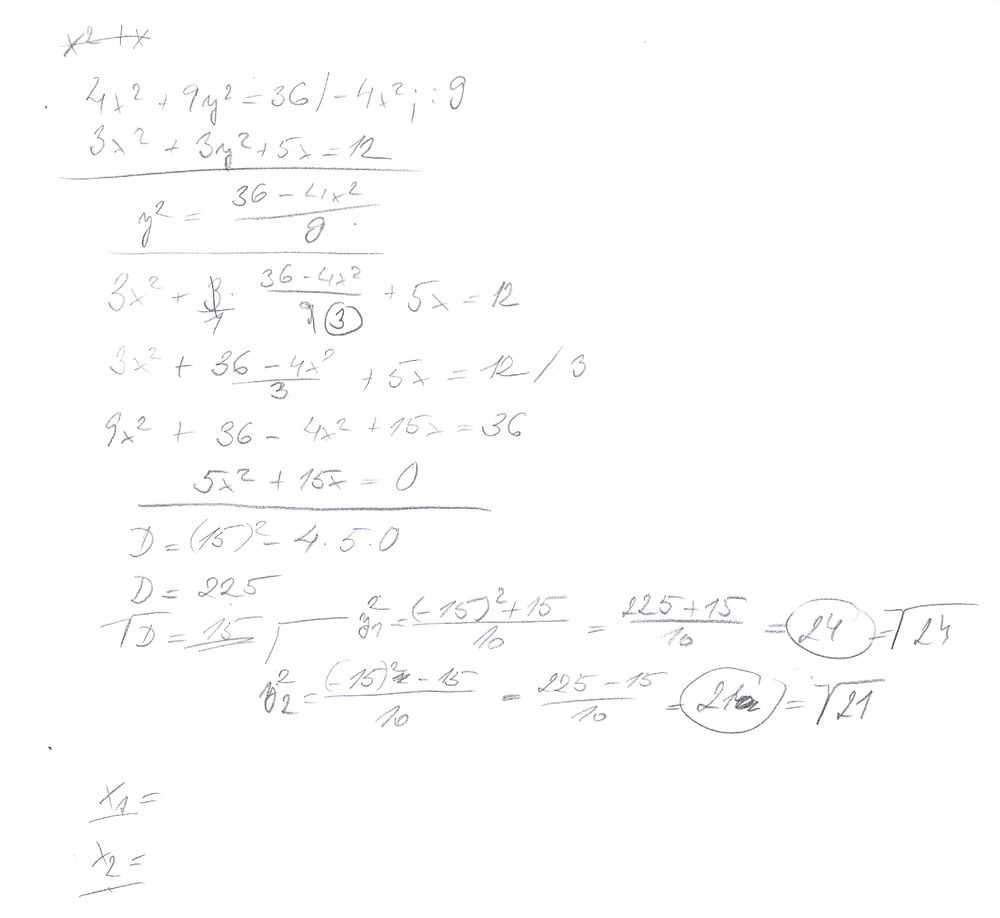 x² + x
4x² + 9y² = 36 / - 4x² ; : 9
3x² + 3y² + 5x = 12
y² = (36 - 4x²)/9
3x² + 3/1 · (36 - 4x²)/9 (3) + 5x = 12
3x² + (36 - 4x²)/3 + 5x = 12 / 3
9x² + 36 - 4x² + 15x = 36
5x² + 15x = 0
D = (15)² - 4 · 5 · 0
D = 225
√D = 15
y₁² = ((-15)² + 15)/10 = (225 + 15)/10 = 24 = √24
y₂² = ((-15)² - 15)/10 = (225 - 15)/10 = 21 = √21
x₁ =
x₂ =